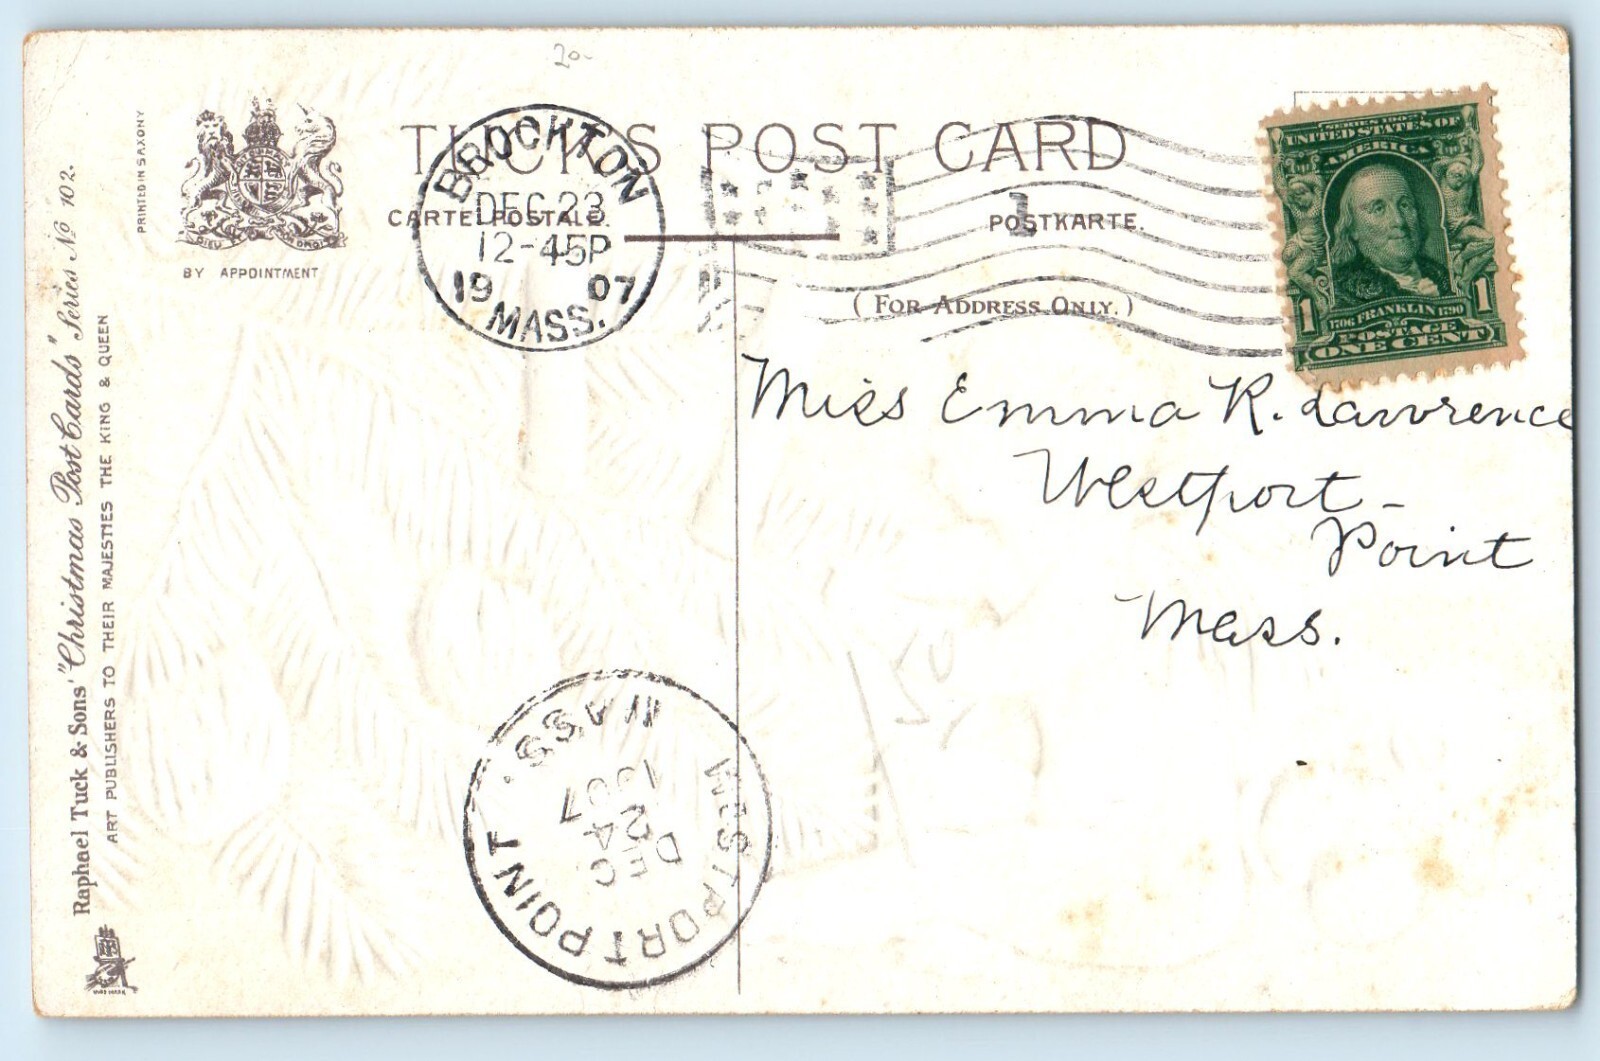 20-
TUCK'S POST CARD
CARTE POSTALE.
POSTKARTE.
(FOR ADDRESS ONLY.)
BROCKTON
DEC 23
12-45P
1907
MASS.
1
SERIES 1902
UNITED STATES OF
AMERICA
1706 FRANKLIN 1790
POSTAGE
1 ONE CENT 1
PRINTED IN SAXONY
DIEU ET MON DROIT
BY APPOINTMENT
Raphael Tuck & Sons' "Christmas Post Cards" Series No 102.
ART PUBLISHERS TO THEIR MAJESTIES THE KING & QUEEN
Miss Emma R. Lawrence
Westport-
Point
Mass.
50
WESTPORT POINT.
MASS.
DEC
24
1907